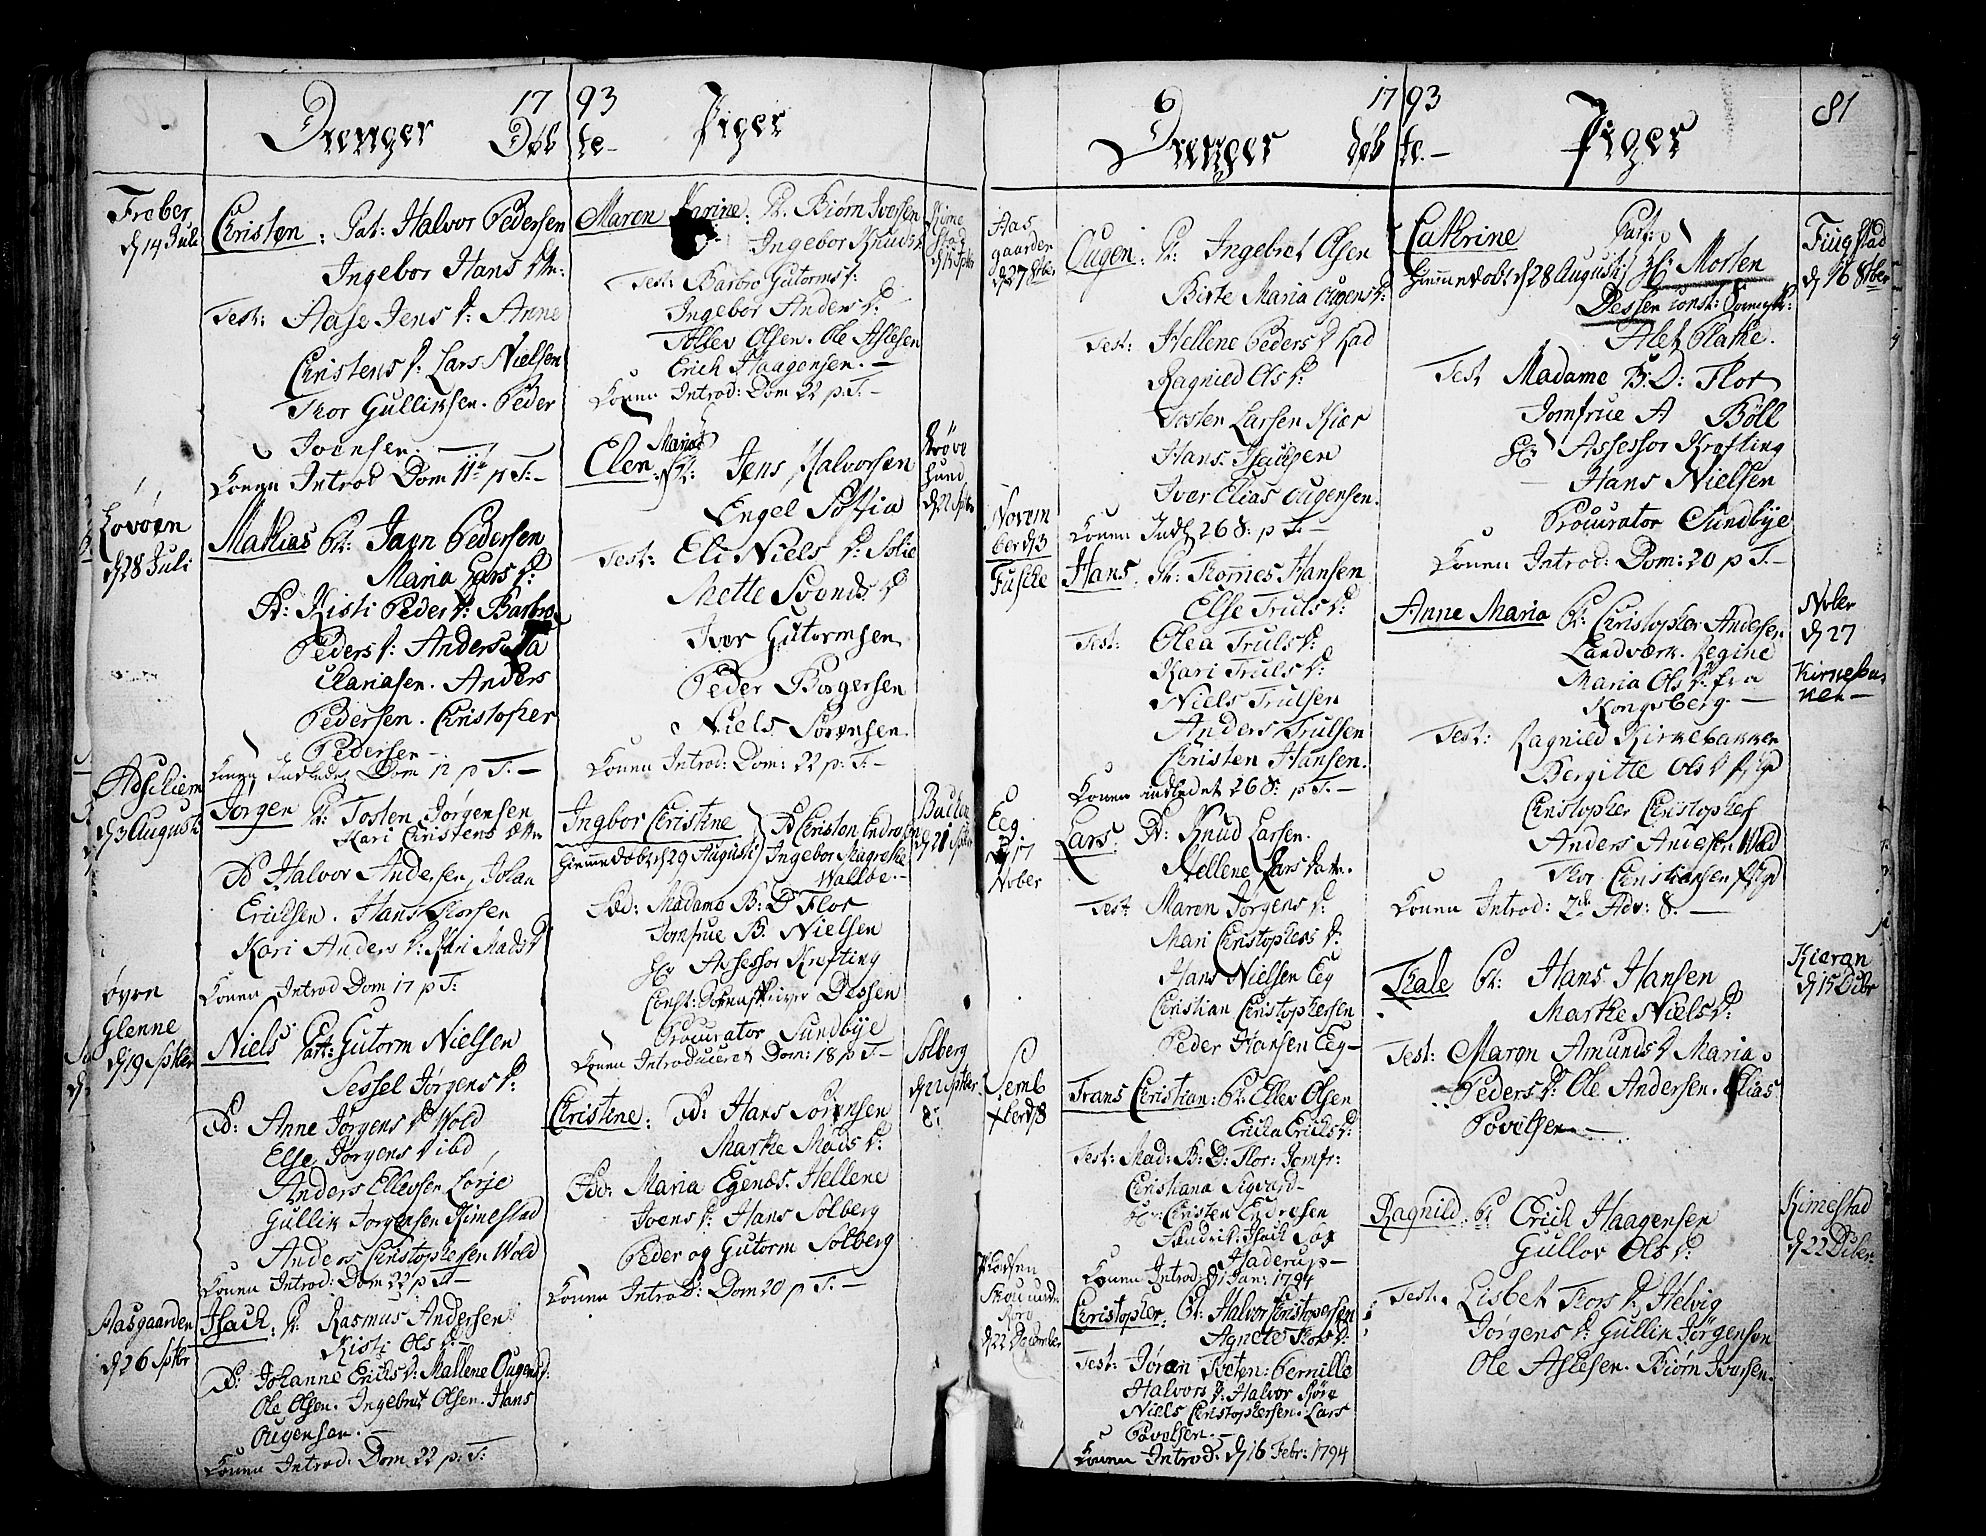 17 93
Drenger Døb te- Piger
Freber
d 14 Juli
Christen: Pat: Halvor Pedersen
Ingebor Hans dtr:
Test: Aase Jens d: Anne
Christens d: Lars Nielsen
Thor Gulliksen. Peder
Joensen.
Konen Introd Dom 11te p T.-
Løvøen
d 28 Juli
Mathias Pt: Jaen Pedersen
Maria Lars d:
Fd: Kisti Peders d: Barbro
Peders d: Anders
Clariasen. Anders
Pedersen. Christopher
Pedersen-
Konen Indledes Dom 12 p T.-
Adschiem
d 3 August
Jørgen Pt: Tosten Jørgensen
Kari Christens dttr
Fd Halvor Andersen, Johan
Ericksen. Hans Thorsen
Kari Anders d: Kari Mads d
Konen Introd Dom 17 p T:
Øyen
Glenne
d 19 Sptbr
Niels Patt: Gutorm Nielsen
Sessel Jørgens d:
Fd: Anne Jørgens d Wold
Else Jørgens d ibd
Anders Ellevsen Lørje
Gullik Jørgensen Kimestad
Anders Christophersen Wold
Konen Introd: Dom 22 p T-
Aasgaarden
d 26 Sptbr
Isach: Pt: Rasmus Andersen:
Kisti Ols d:
Fd: Johanne Ericks d: Mallene Ougens d:
Ole Olsen. Ingebret Olsen. Hans
Ougensen.-
Konen Introd: Dom 22 p: T:
Maren Karine: Pt. Biørn Iversen
Ingebor Knuds d
Test: Barbro Gutorms d:
Ingebor Anders d:
Tollev Olsen. Ole Aslesen
Erich Haagensen.-
Konen Introd: Dom 22 p: T.-
Kime
stad
d 15 Sptbr
Elen Maria: Pt: Jens Halvorsen
Engel Sofia
Test: Eli Niels d: Solie
Mette Svends d
Iver Gutormsen
Peder Borgersen
Niels Sørensen.
Konen Introd: Dom: 22 p: T.-
Røve
hund
d 22 Sptbr
Ingbor Christine Pt Christen Endresen
Hiemmedøbt d 29 Augusti Ingebor Magrethe
Walløe-
Fad: Madame B: D Flor
Jomfrue B. Nielsen
Hr Assessor Krefting
Const: Sorenskriver Dessen
Procurator Sundbye
Konen Introduceret Dom: 18 p T-
Backen
d 21 Sptbr
Christine: Pt: Hans Sørensen
Marthe Mads d:
Fad: Maria Egenæs. Hellene
Joens d: Hans Solberg
Peder og Gutorm Solberg
Konen Introd: Dom 20 p T.-
Solberg
d 22 Sptbr
17 93 81
Drenger døb te.- Piger
Aas
gaarden
d 27 8tber
Ougen: Pt: Ingebret Olsen
Birte Maria Ougens d:
Test: Hellene Peders d Rad
Ragnild Ols d:
Tosten Larsen Kiær
Hans Isaksen
Iver Elias Ougensen.
Konen Indl 26 8: p T-
Novem
ber d 3
Fuske
Hans. Pt: Thommes Hansen
Else Truls d:
Test: Olea Truls d:
Kari Truls d:
Niels Trulsen
Anders Trulsen
Christen Hansen.
Konen indledet 26 8: p T.-
Eeg
d 17
Nober
Lars: Pt: Knud Larsen.
Hellene Lars dattr.
Test: Maren Jørgens d:
Mari Christophers d:
Hans Nielsen Eeg
Christian Christophersen
Peder Hansen Eeg-
Semb
Xber d 8
Frans Christian: Pt: Ellev Olsen
Ericka Ericks d:
Test: Mad: B: D: Flor: Jomfr:
Christiana Sigvard-
Hr: Christen Endresen
Fændrik: Isach Sax
Haderup-
Konen Introd: d 1 Jan: 1794
d 22 December
Christopher: Pt: Halvor Christophersen
Agnete Thors d:
Test: Jøran Bøten: Pernille
Halvors d: Halvor Røre
Niels Christophersen: Lars
Povelsen.-
Konen Introd: d 16 Febr: 1794
Cathrine Pat:
Hiemmedøbt d 28 Augusti Hr Morten
Dessen const: Sorenskr:
Alet Plathe.
Test Madame B: D: Flor
Jomfrue A Böll
Hr Assessor Krefting
Hans Nielsen
Procurator Sundbye
Konen Introd: Dom: 20 p T.-
Fiugstad
d 16 8tber
Anne Maria Pt: Christopher Andersen
Landværk. Regine
Maria Ols d: fra
Kongsberg.-
Test: Ragnild Kirkebakken
Bergitte Ols d ibd
Christopher Christophes
Anders Andersen Wold
Thor Christiansen ibd
Konen Introd: 2de Adv: 8.-
Nober
d 27
Kirkebac
ken-
Thale Pt: Hans Hansen
Marthe Niels d:
Test: Maren Amunds d: Maria
Peders d: Ole Andersen. Elias
Povelsen.-
Kieran
d 15 Dcbr
Ragnild: Pt: Erich Haagensen
Gullov Ols d:
Test. Lisbet Thors d, Helvig
Jørgens d: Gullik Jørgensen
Ole Aslesen. Biørn Iversen.
Kimestad
d 22 Dcber